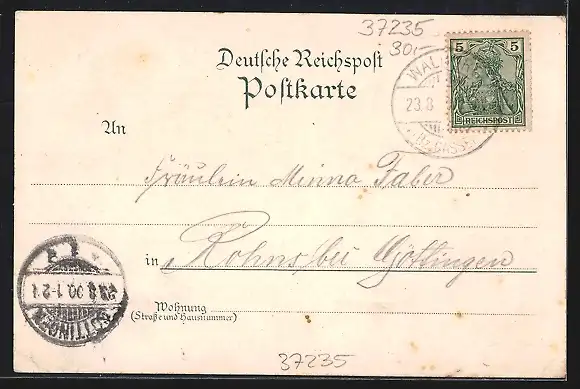 37235
30,-
5 5
REICHSPOST
WAL
23.8
CASSEL
Deutsche Reichspost
Postkarte
An
Fräulein Minna Faber
in Rohns bei Göttingen
GÖTTINGEN
1-2
Wohnung
(Straße und Hausnummer)
37235